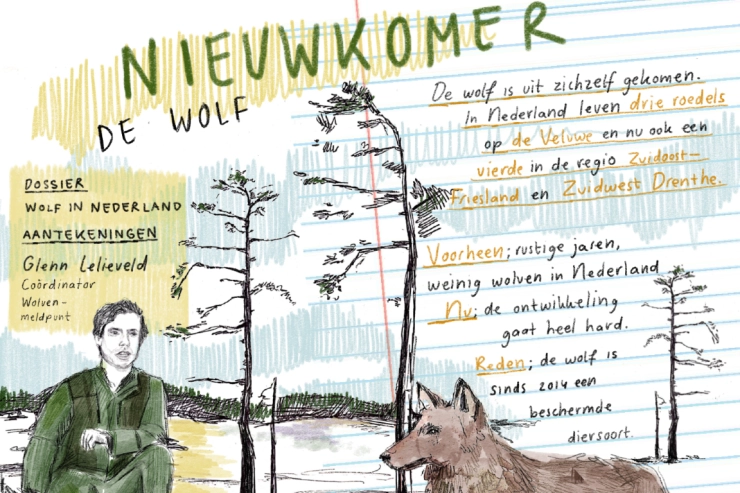 NIEUWKOMER
DE WOLF
DOSSIER
WOLF IN NEDERLAND
AANTEKENINGEN
Glenn Lelieveld
Coördinator
Wolven-
meldpunt
De wolf is uit zichzelf gekomen.
in Nederland leven drie roedels
op de Veluwe en nu ook een
vierde in de regio Zuidoost-
Friesland en Zuidwest Drenthe.
Voorheen; rustige jaren,
weinig wolven in Nederland
Nu; de ontwikkeling
gaat heel hard.
Reden; de wolf is
sinds 2014 een
beschermde
diersoort.